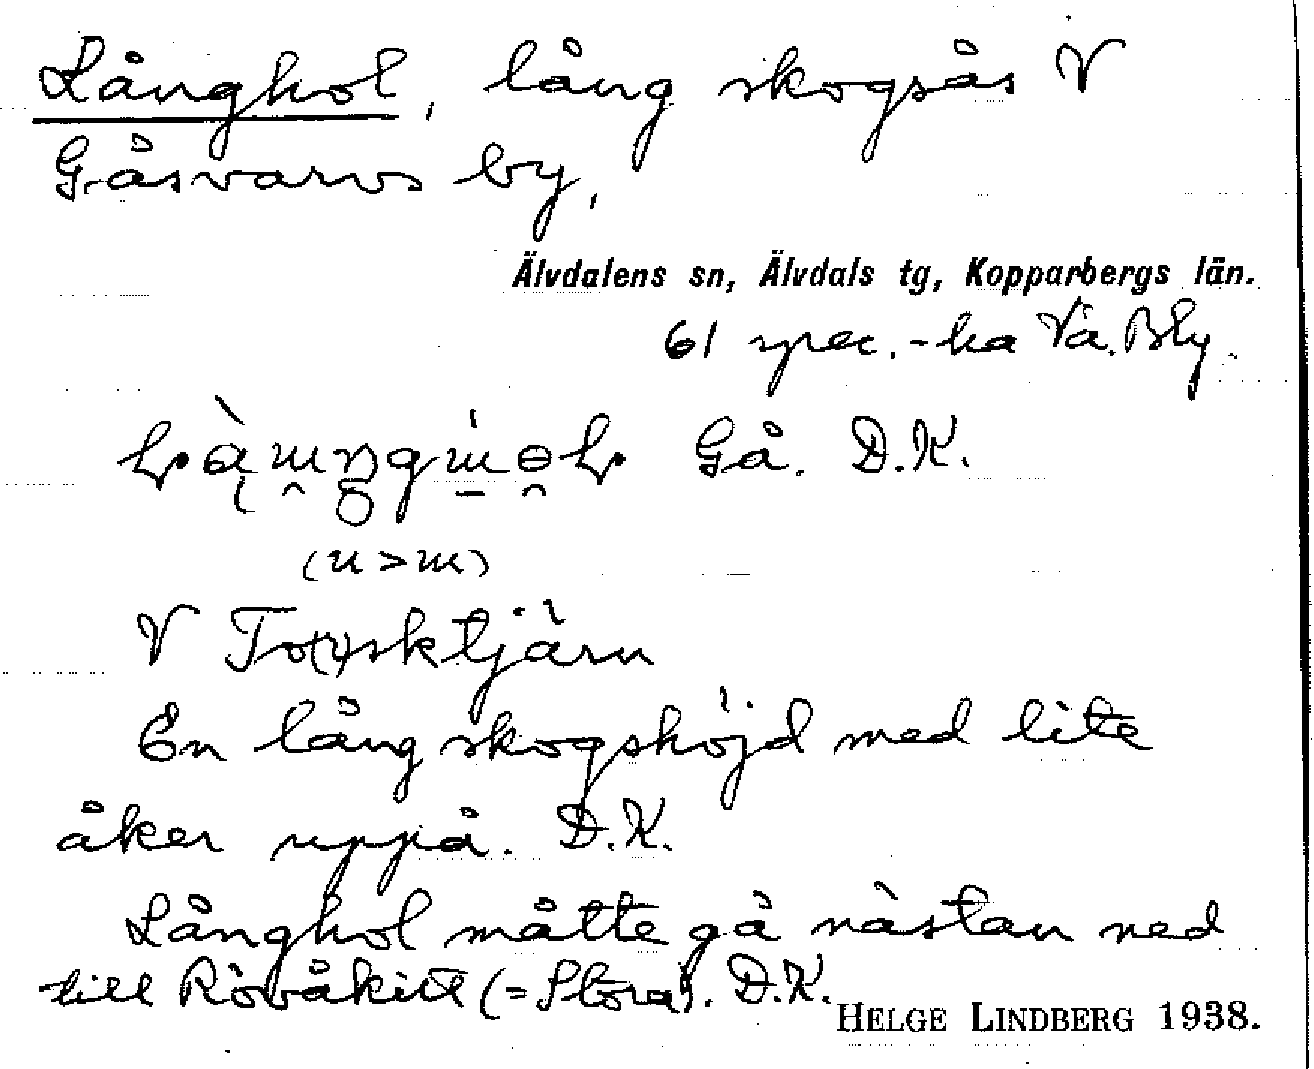 Långhol, lång skogsås V
Gåsvarvs by,
Älvdalens sn, Älvdals tg, Kopparbergs län.
61 spec.-ka Vä. Bly.
Gå. D.K.
(u > ɯ)
V To(r)sktjärn
En lång skogshöjd med lite
åker uppå. D.K.
Långhol måtte gå nästan ned
till Rövåkitt (= Stora). D.K.
HELGE LINDBERG 1938.